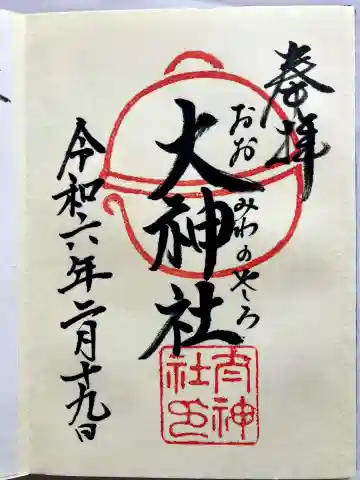 奉拝
おおみわのやしろ
大神社
令和六年二月十九日
大神社印